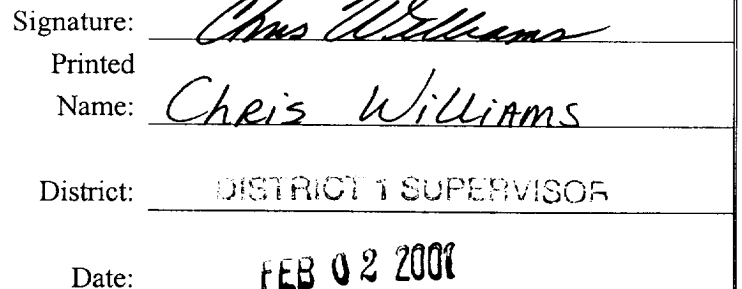 Signature: Chris Williams
Printed
Name: Chris Williams
District: DISTRICT 1 SUPERVISOR
Date: FEB 02